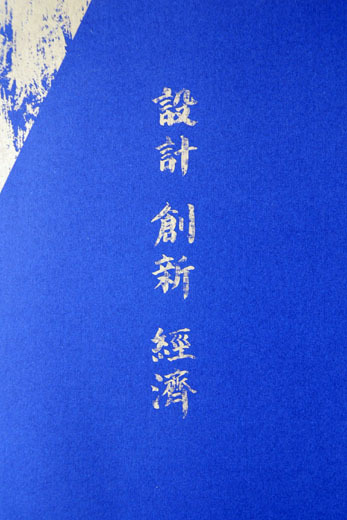 設計 創新 經濟